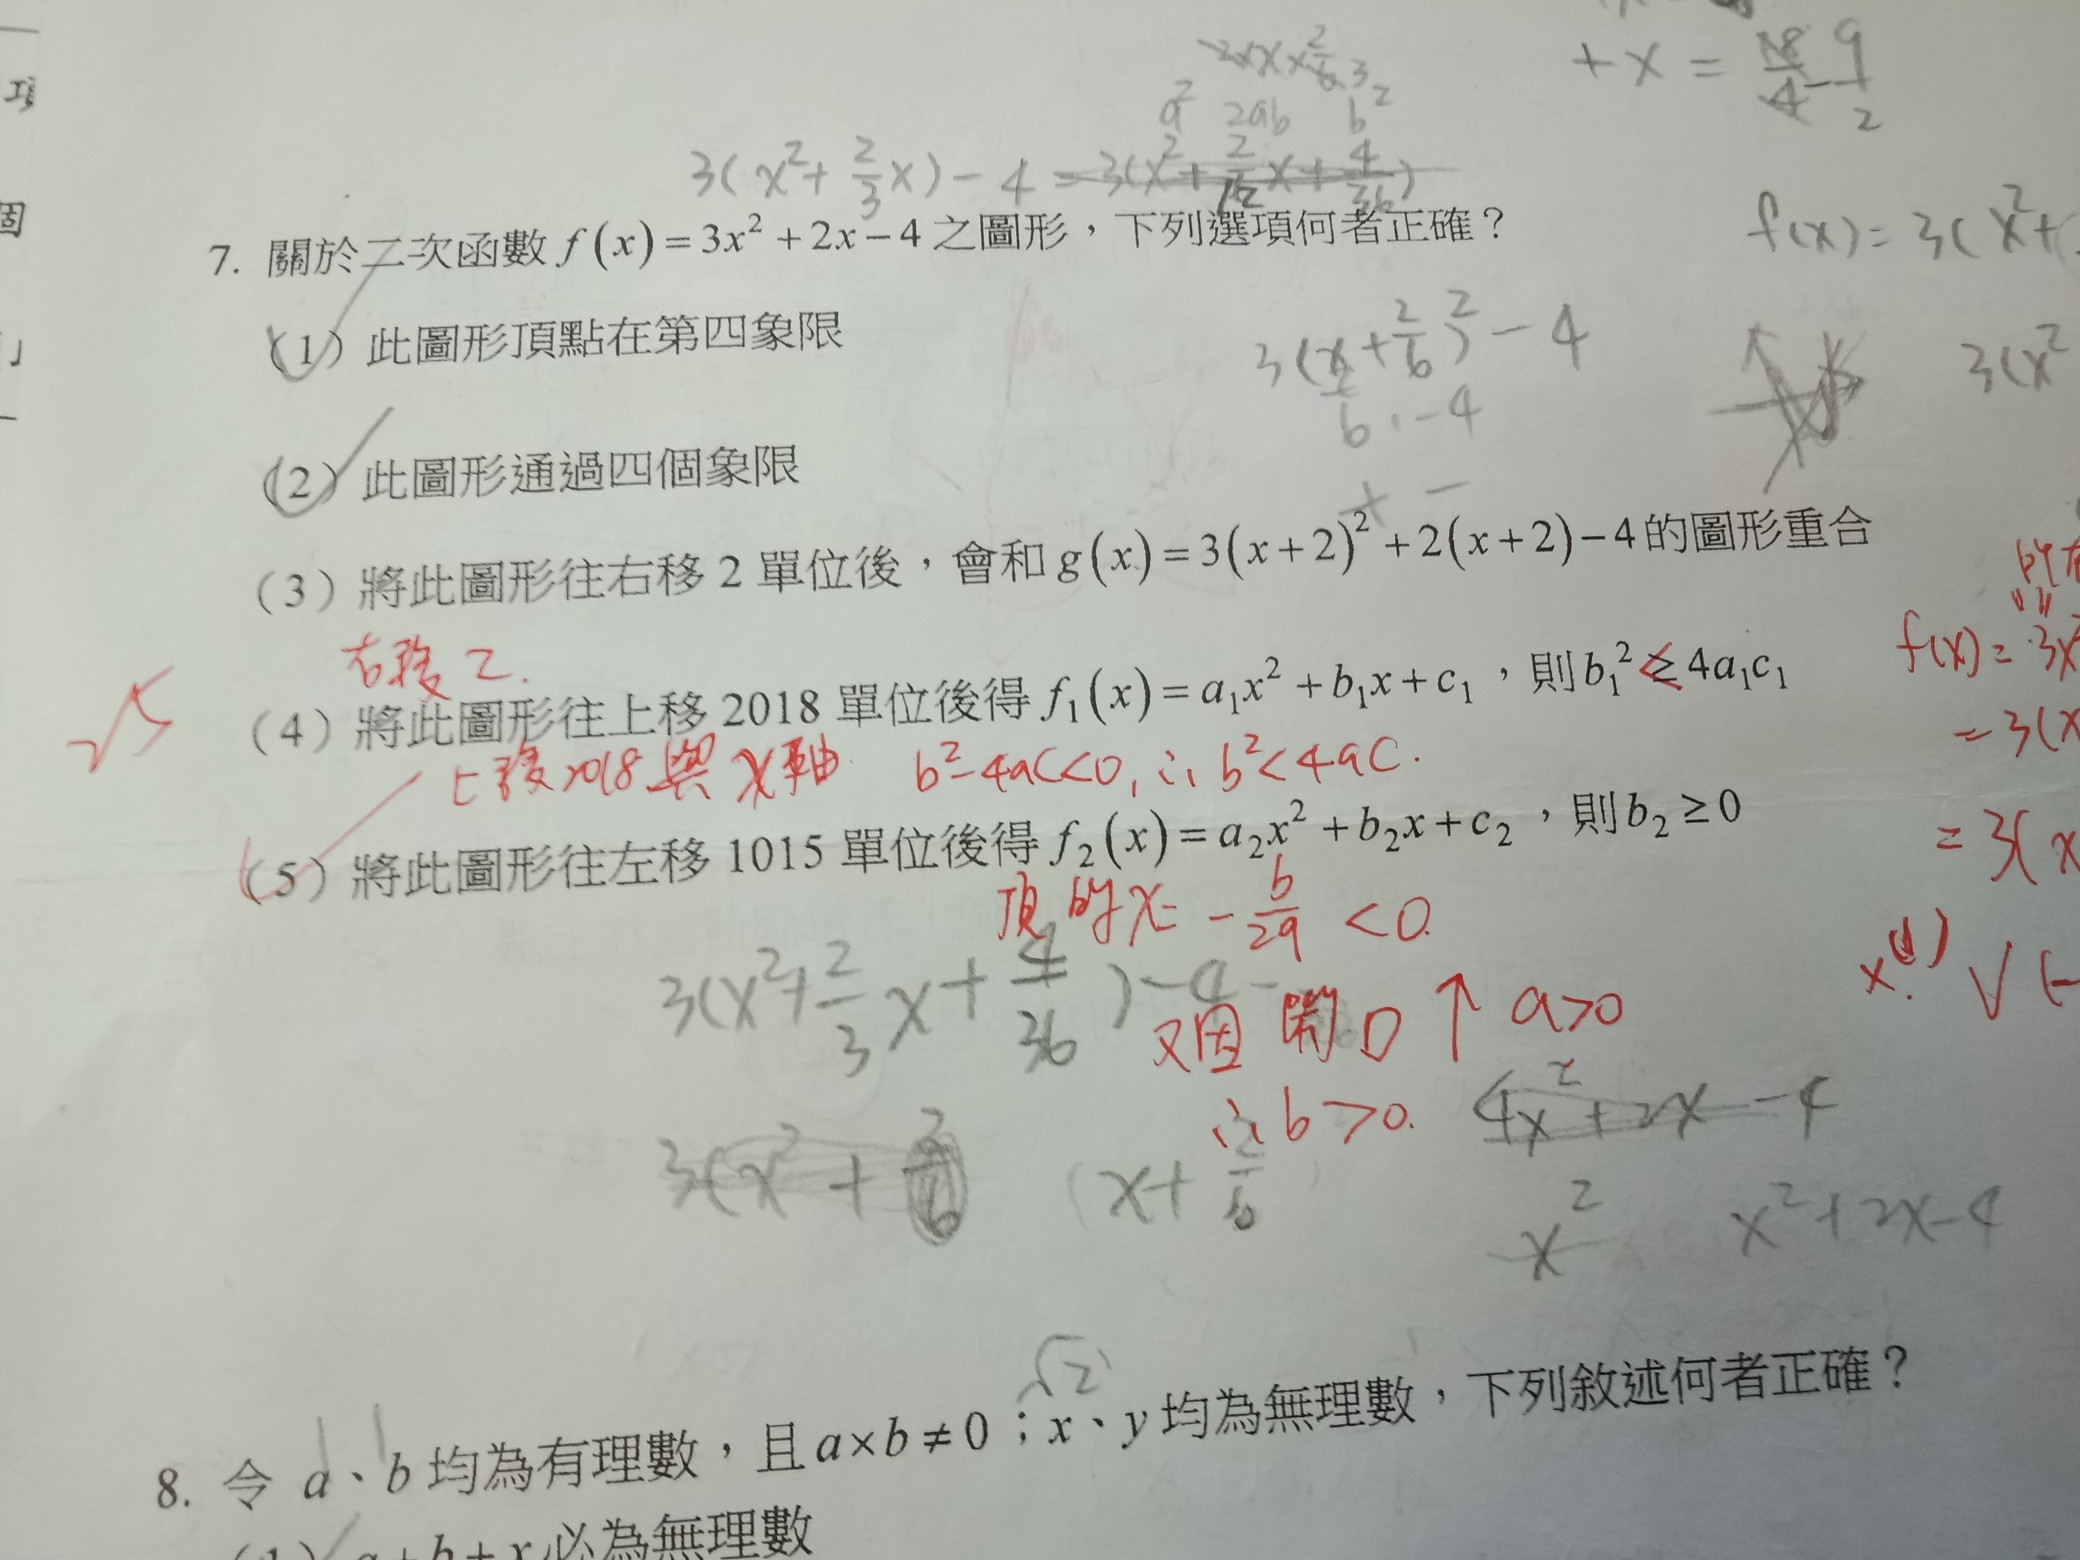 項
個
+x = 18/4 - 9/2
a² 2ab b²
3(x²+2/3x)-4 = 3(x²+2/12x+4/36)
7. 關於二次函數 f(x)=3x²+2x-4 之圖形,下列選項何者正確?
f(x)=3(x²+
(1) 此圖形頂點在第四象限
3(x+2/6)²-4
3(x²
6,-4
(2) 此圖形通過四個象限
+ -
(3) 將此圖形往右移 2 單位後,會和 g(x)=3(x+2)²+2(x+2)-4 的圖形重合
右移 2.
f(x)=3x²
(4) 將此圖形往上移 2018 單位後得 f₁(x)=a₁x²+b₁x+c₁,則 b₁² ≥ 4a₁c₁
<
=3(x
上移2018與x軸 b²-4ac<0, ∴ b²<4ac.
(5) 將此圖形往左移 1015 單位後得 f₂(x)=a₂x²+b₂x+c₂,則 b₂ ≥ 0
=3(x
頂的x= -b/2a <0.
3(x²+2/3x+4/36)-4-
x.(1) √(-
又因開口↑ a>0
∴ b>0.
4x²+2x-4
3(x²+2/6
x+2/6
x²
x²+2x-4
√2
8. 令 a、b 均為有理數,且 a×b≠0;x、y 均為無理數,下列敘述何者正確?
(1) a+b+x 必為無理數